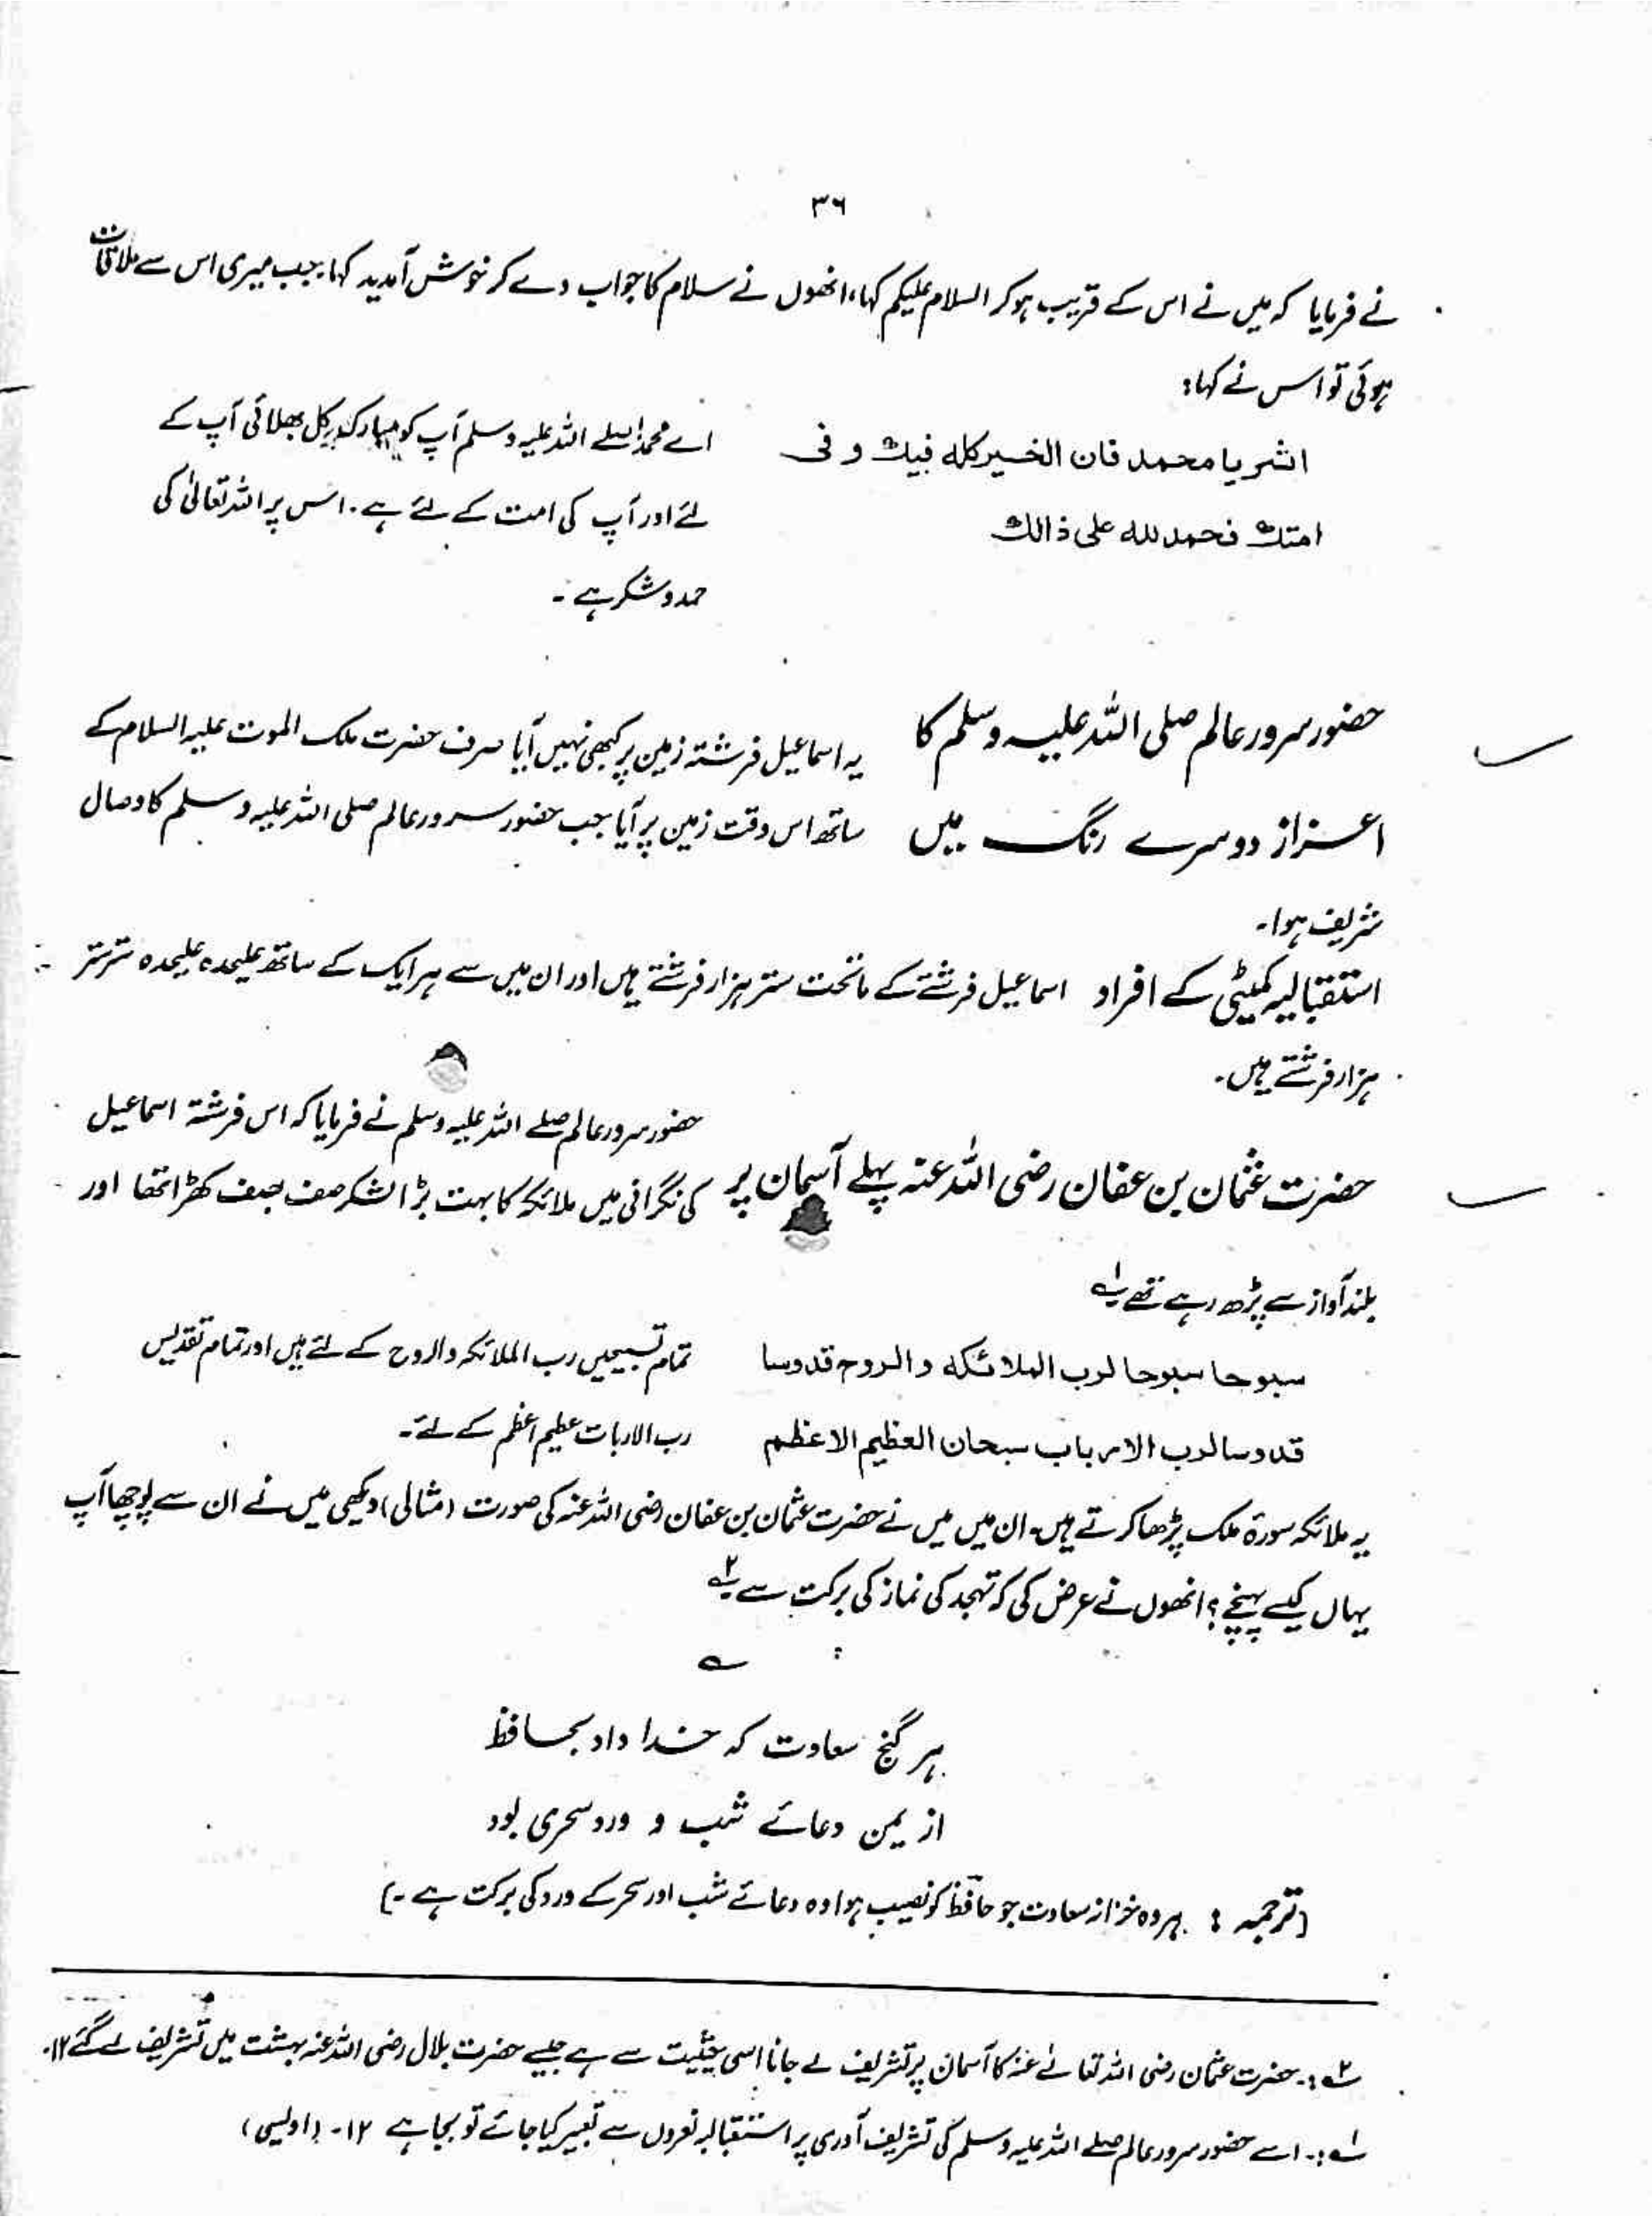 ۳۶
نے فرمایا کہ میں نے اس کے قریب ہوکر السلام علیکم کہا، انھوں نے سلام کا جواب دے کر خوش آمدید کہا، جب میری اس سے ملاقات
ہوئی تو اس نے کہا:
ابشر یا محمد فان الخیر کله فیك و فی
امتك فحمد لله علی ذالك
اے محمد! صلے اللہ علیہ وسلم آپ کو مبارک ہو کہ کل بھلائی آپ کے
لئے اور آپ کی امت کے لئے ہے۔ اس پر اللہ تعالیٰ کی
حمد و شکر ہے۔
حضور سرور عالم صلی اللہ علیہ وسلم کا
اعزاز دوسرے رنگ میں
یہ اسماعیل فرشتہ زمین پر کبھی نہیں آیا صرف حضرت ملک الموت علیہ السلام کے
ساتھ اس وقت زمین پر آیا جب حضور سرور عالم صلی اللہ علیہ وسلم کا وصال
شریف ہوا۔
استقبالیہ کمیٹی کے افراد اسماعیل فرشتے کے ماتحت ستر ہزار فرشتے ہیں اور ان میں سے ہر ایک کے ساتھ علیحدہ علیحدہ ستر ستر
ہزار فرشتے ہیں۔
حضرت عثمان بن عفان رضی اللہ عنہ پہلے آسمان پر
حضور سرور عالم صلے اللہ علیہ وسلم نے فرمایا کہ اس فرشتہ اسماعیل
کی نگرانی میں ملائکہ کا بہت بڑا لشکر صف بصف کھڑا تھا اور
بلند آواز سے پڑھ رہے تھے ۱؎
سبوحا سبوحا لرب الملائكه والروح قدوسا
قدوسا لرب الارباب سبحان العظیم الاعظم
تمام تسبیحیں رب الملائکہ والروح کے لئے ہیں اور تمام تقدیس
رب الاربات عظیم اعظم کے لئے۔
یہ ملائکہ سورۃ ملک پڑھا کرتے ہیں۔ ان میں میں نے حضرت عثمان بن عفان رضی اللہ عنہ کی صورت (مثالی) دیکھی میں نے ان سے پوچھا آپ
یہاں کیسے پہنچے؟ انھوں نے عرض کی کہ تہجد کی نماز کی برکت سے ۲؎
؎
ہر گنج سعادت کہ خدا داد بحافظ
از یمن دعائے شب و ورد سحری بود
(ترجمہ : ہر وہ خزانہ سعادت جو حافظؔ کو نصیب ہوا وہ دعائے شب اور سحر کے ورد کی برکت ہے۔)
۲؎ :۔ حضرت عثمان رضی اللہ تعالےٰ عنہ کا آسمان پر تشریف لے جانا اسی حیثیت سے ہے جیسے حضرت بلال رضی اللہ عنہ بہشت میں تشریف لے گئے ۱۲۔
۱؎ :۔ اسے حضور سرور عالم صلے اللہ علیہ وسلم کی تشریف آوری پر استقبالیہ نعروں سے تعبیر کیا جائے تو بجا ہے ۱۲۔ (اویسی)